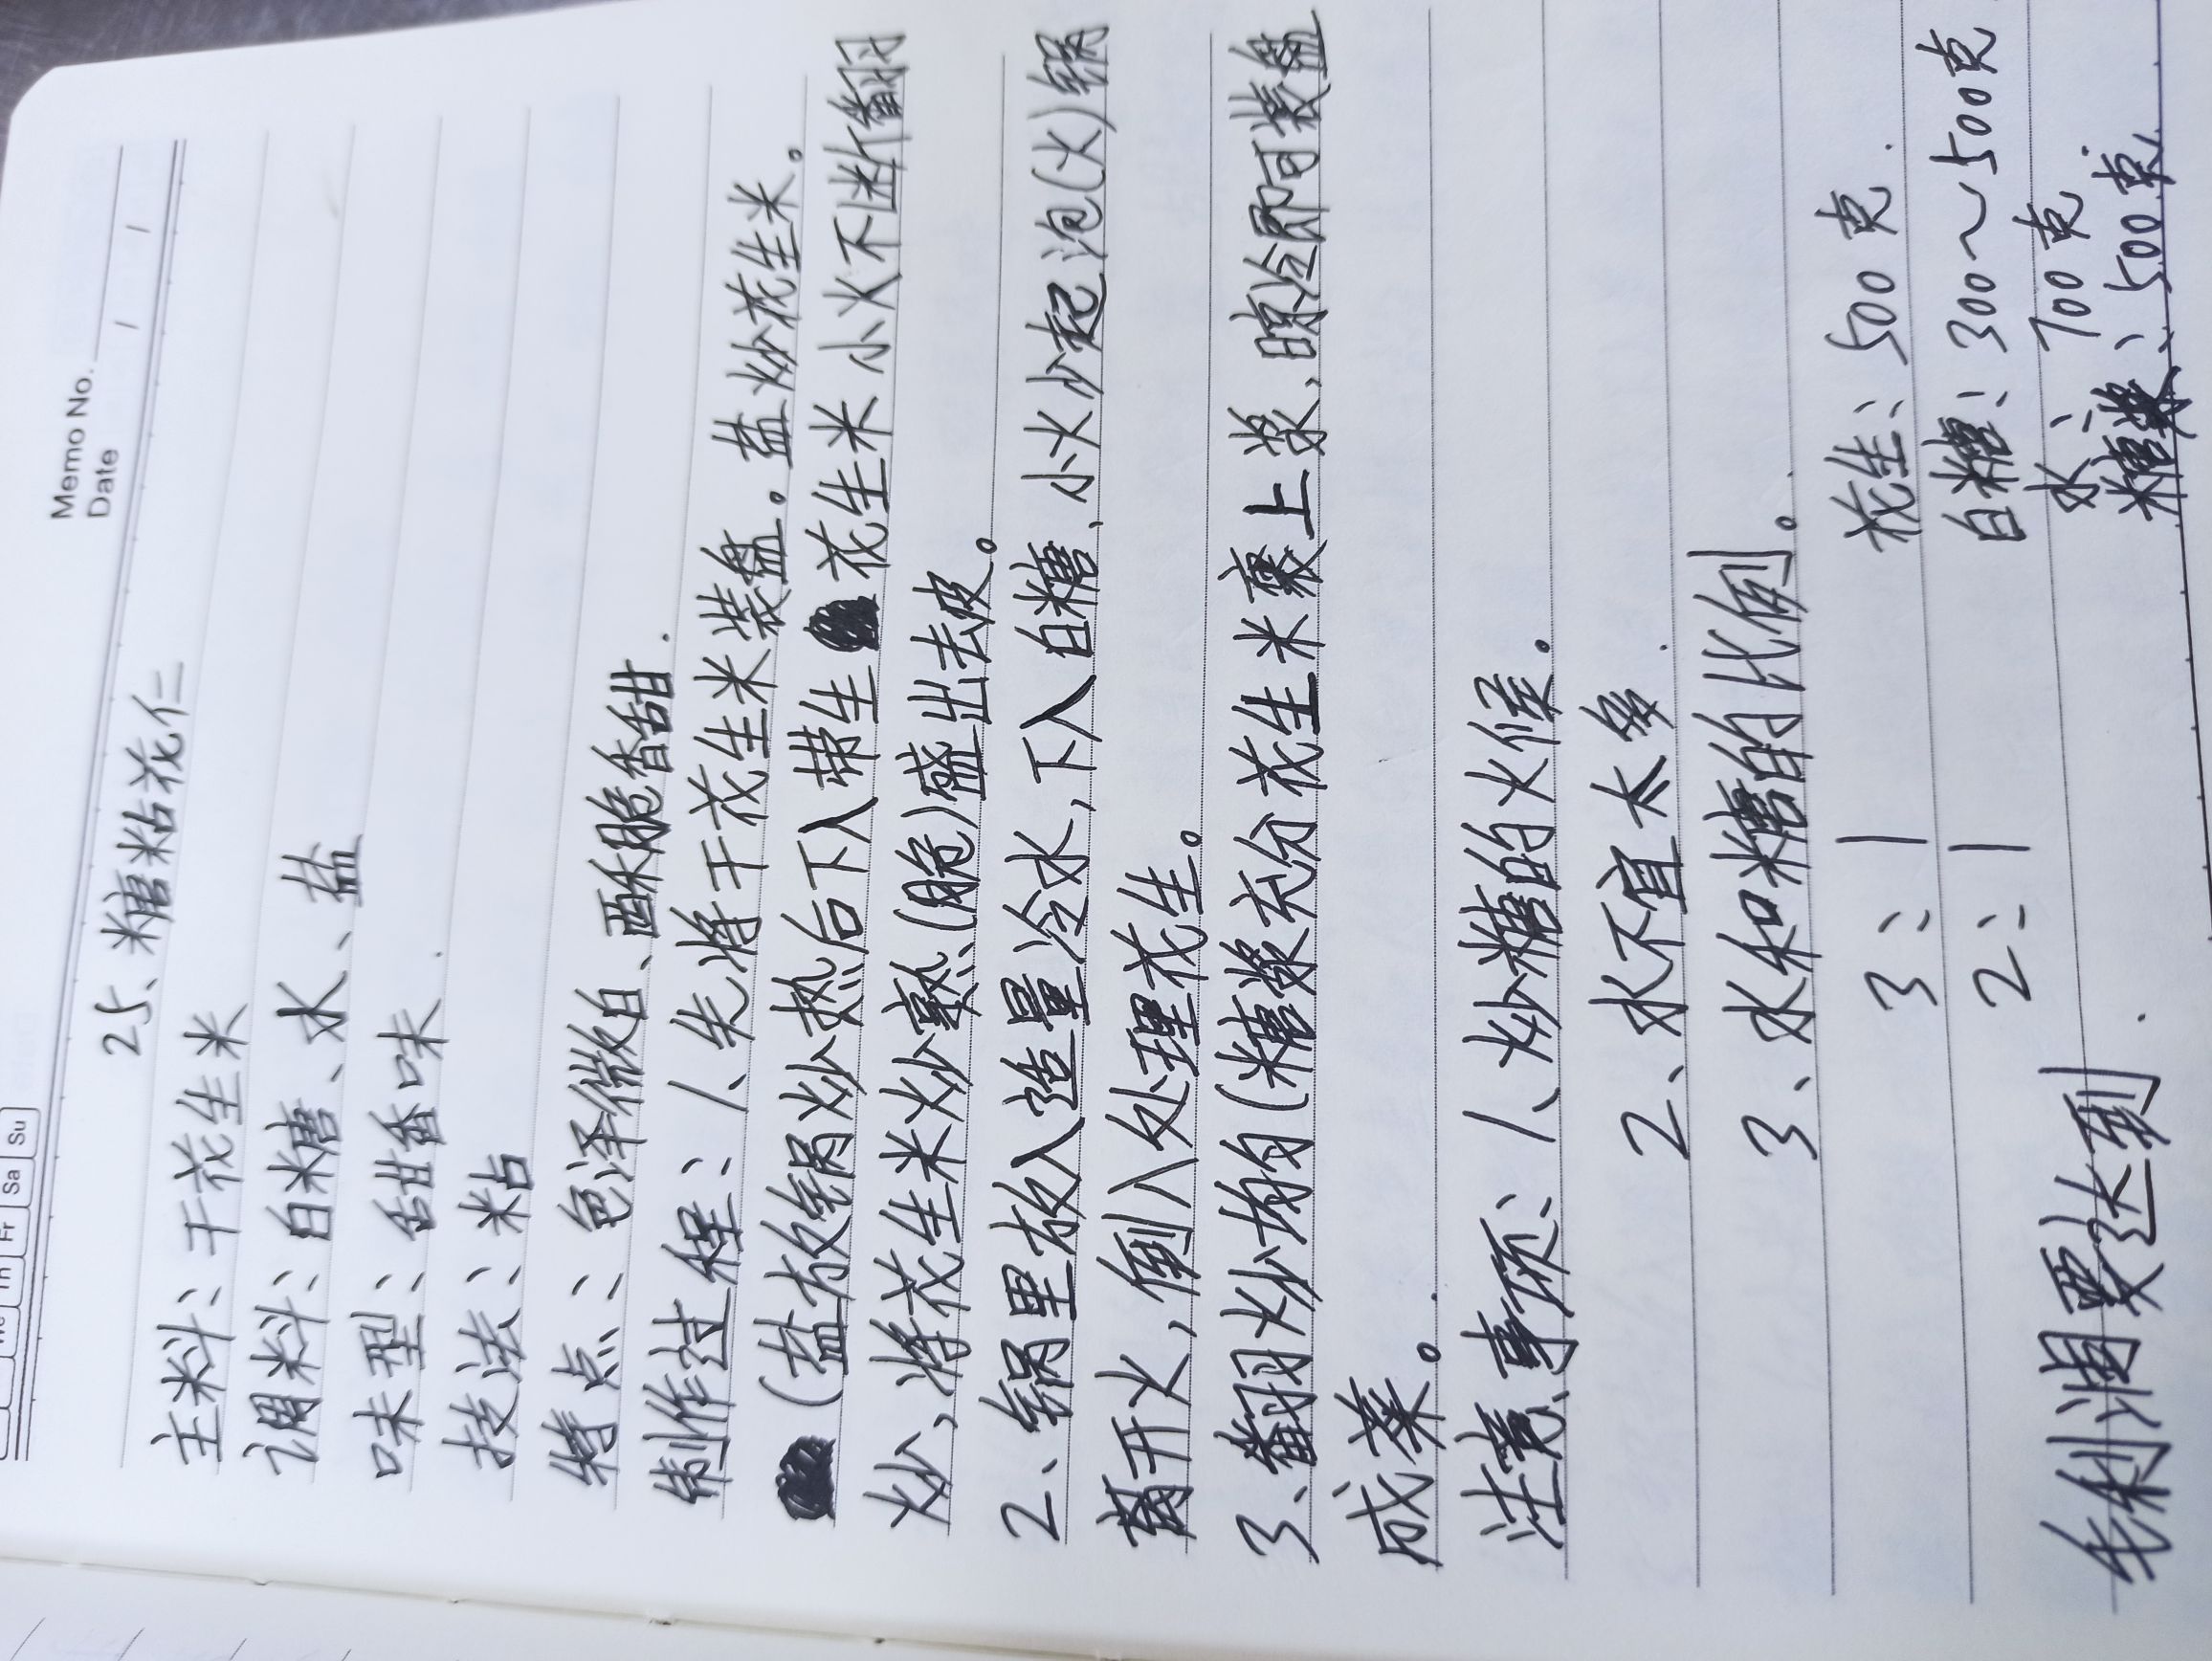 Memo No.
Date / /
Th Fr Sa Su
25、糖粘花仁
主料：干花生米
调料：白糖、水、盐
味型：甜香味
技法：粘
特点：色泽微白、酥脆香甜.
制作过程：1、先将干花生米装盘。盐炒花生米。
(盐放锅炒热后下入带生花生米小火不断翻
炒、将花生米炒熟(脆)盛出去皮。
2、锅里放入适量冷水，下入白糖、小火炒起泡(火)锅
离开火，倒入处理花生。
3、翻炒均匀(糖浆充分花生米裹上浆、晾冷即可装盘
成菜。
注意事项：1、炒糖的火候.
2、水不宜太多
3、水和糖的比例。
3：1 花生：500克.
2：1 白糖：300～500克
水：700克
毛利润要达到. 糖浆：500克.